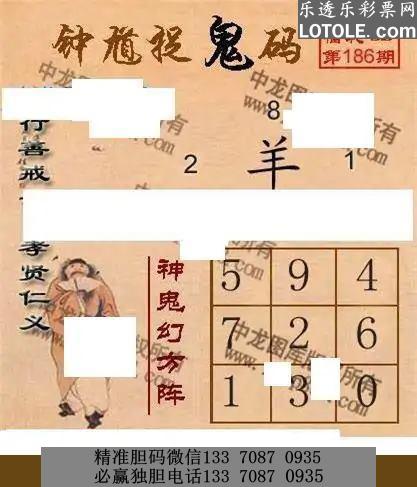 乐透乐彩票网
LOTOLE.COM
钟馗捉鬼码
第186期
行善戒
孝贤仁义
8
2 羊 1
神鬼幻方阵
5 9 4
7 2 6
1 3 0
精准胆码微信133 7087 0935
必赢独胆电话133 7087 0935